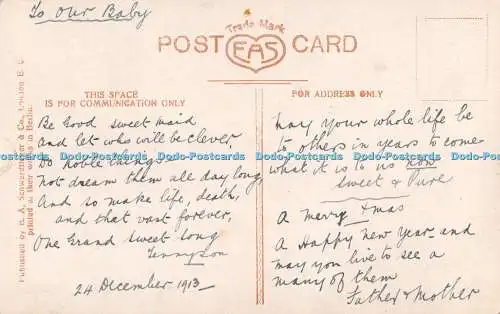 To Our Baby
Trade Mark
POST EAS CARD
THIS SPACE
IS FOR COMMUNICATION ONLY
Be Good sweet maid
and let who will be clever,
Do noble things,
not dream them all day long,
And so make life, death,
and that vast forever,
One Grand sweet song
Tennyson
24 December 1913
FOR ADDRESS ONLY
May your whole life be
to others in years to come
what it is to us now
Sweet & Pure
A merry Xmas
A Happy New Year and
may you live to see a
many of them
Father & Mother
Published by E. A. Schwerdtfeger & Co., London E. C.
printed at their works in Berlin.
Dodo-Postcards Dodo-Postcards Dodo-Postcards Dodo-Postcards Dodo-Postcards Dodo-Postcards